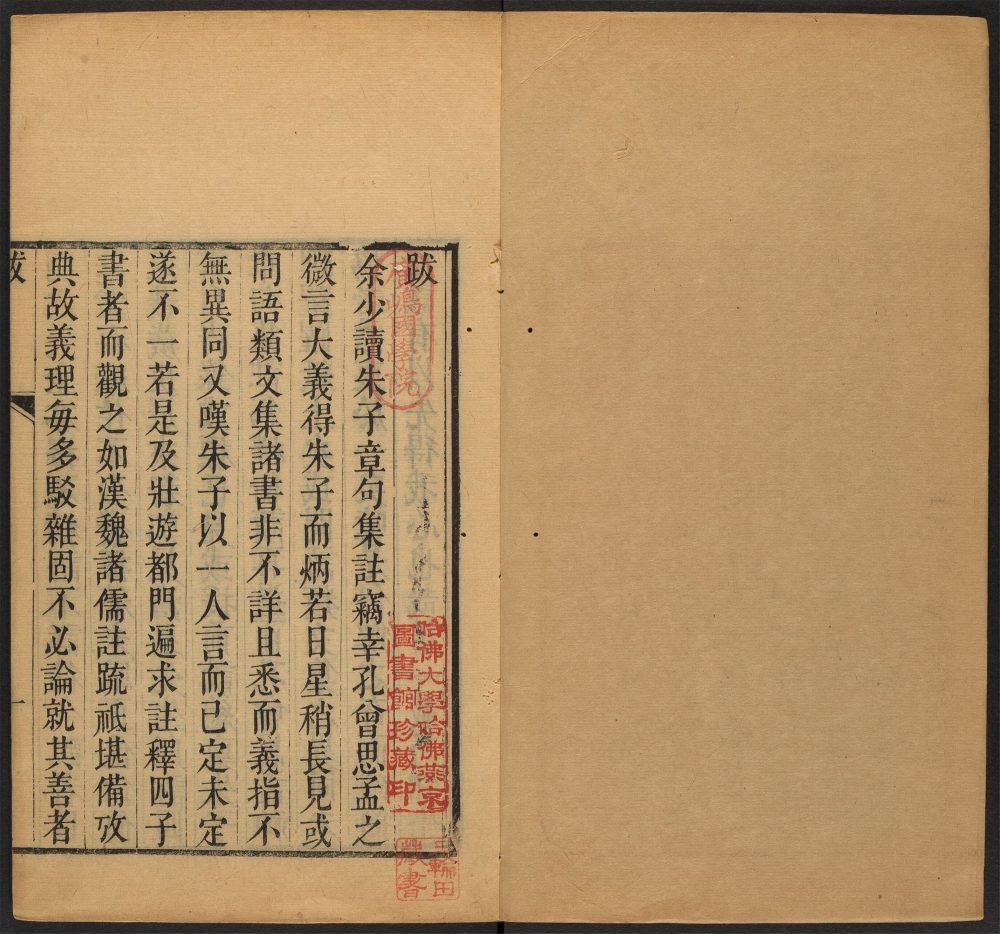 跋
余少讀朱子章句集註竊幸孔曾思孟之
微言大義得朱子而炳若日星稍長見或
問語類文集諸書非不詳且悉而義指不
無異同又嘆朱子以一人言而已定未定
遂不一若是及壯遊都門遍求註釋四子
書者而觀之如漢魏諸儒註疏祗堪備攷
典故義理每多駁雜固不必論就其善者
跋
一
哈佛大學哈佛燕京
圖書館珍藏印
國學院
藏書